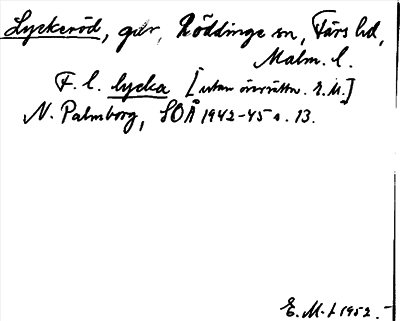 Lyckeröd, går, Röddinge sn, Färs hd,
Malm. l.
F. l. lycka [utan översättn. E.M.]
N. Palmborg, SOÅ 1942-45 s. 13.
E. M-t 1952.